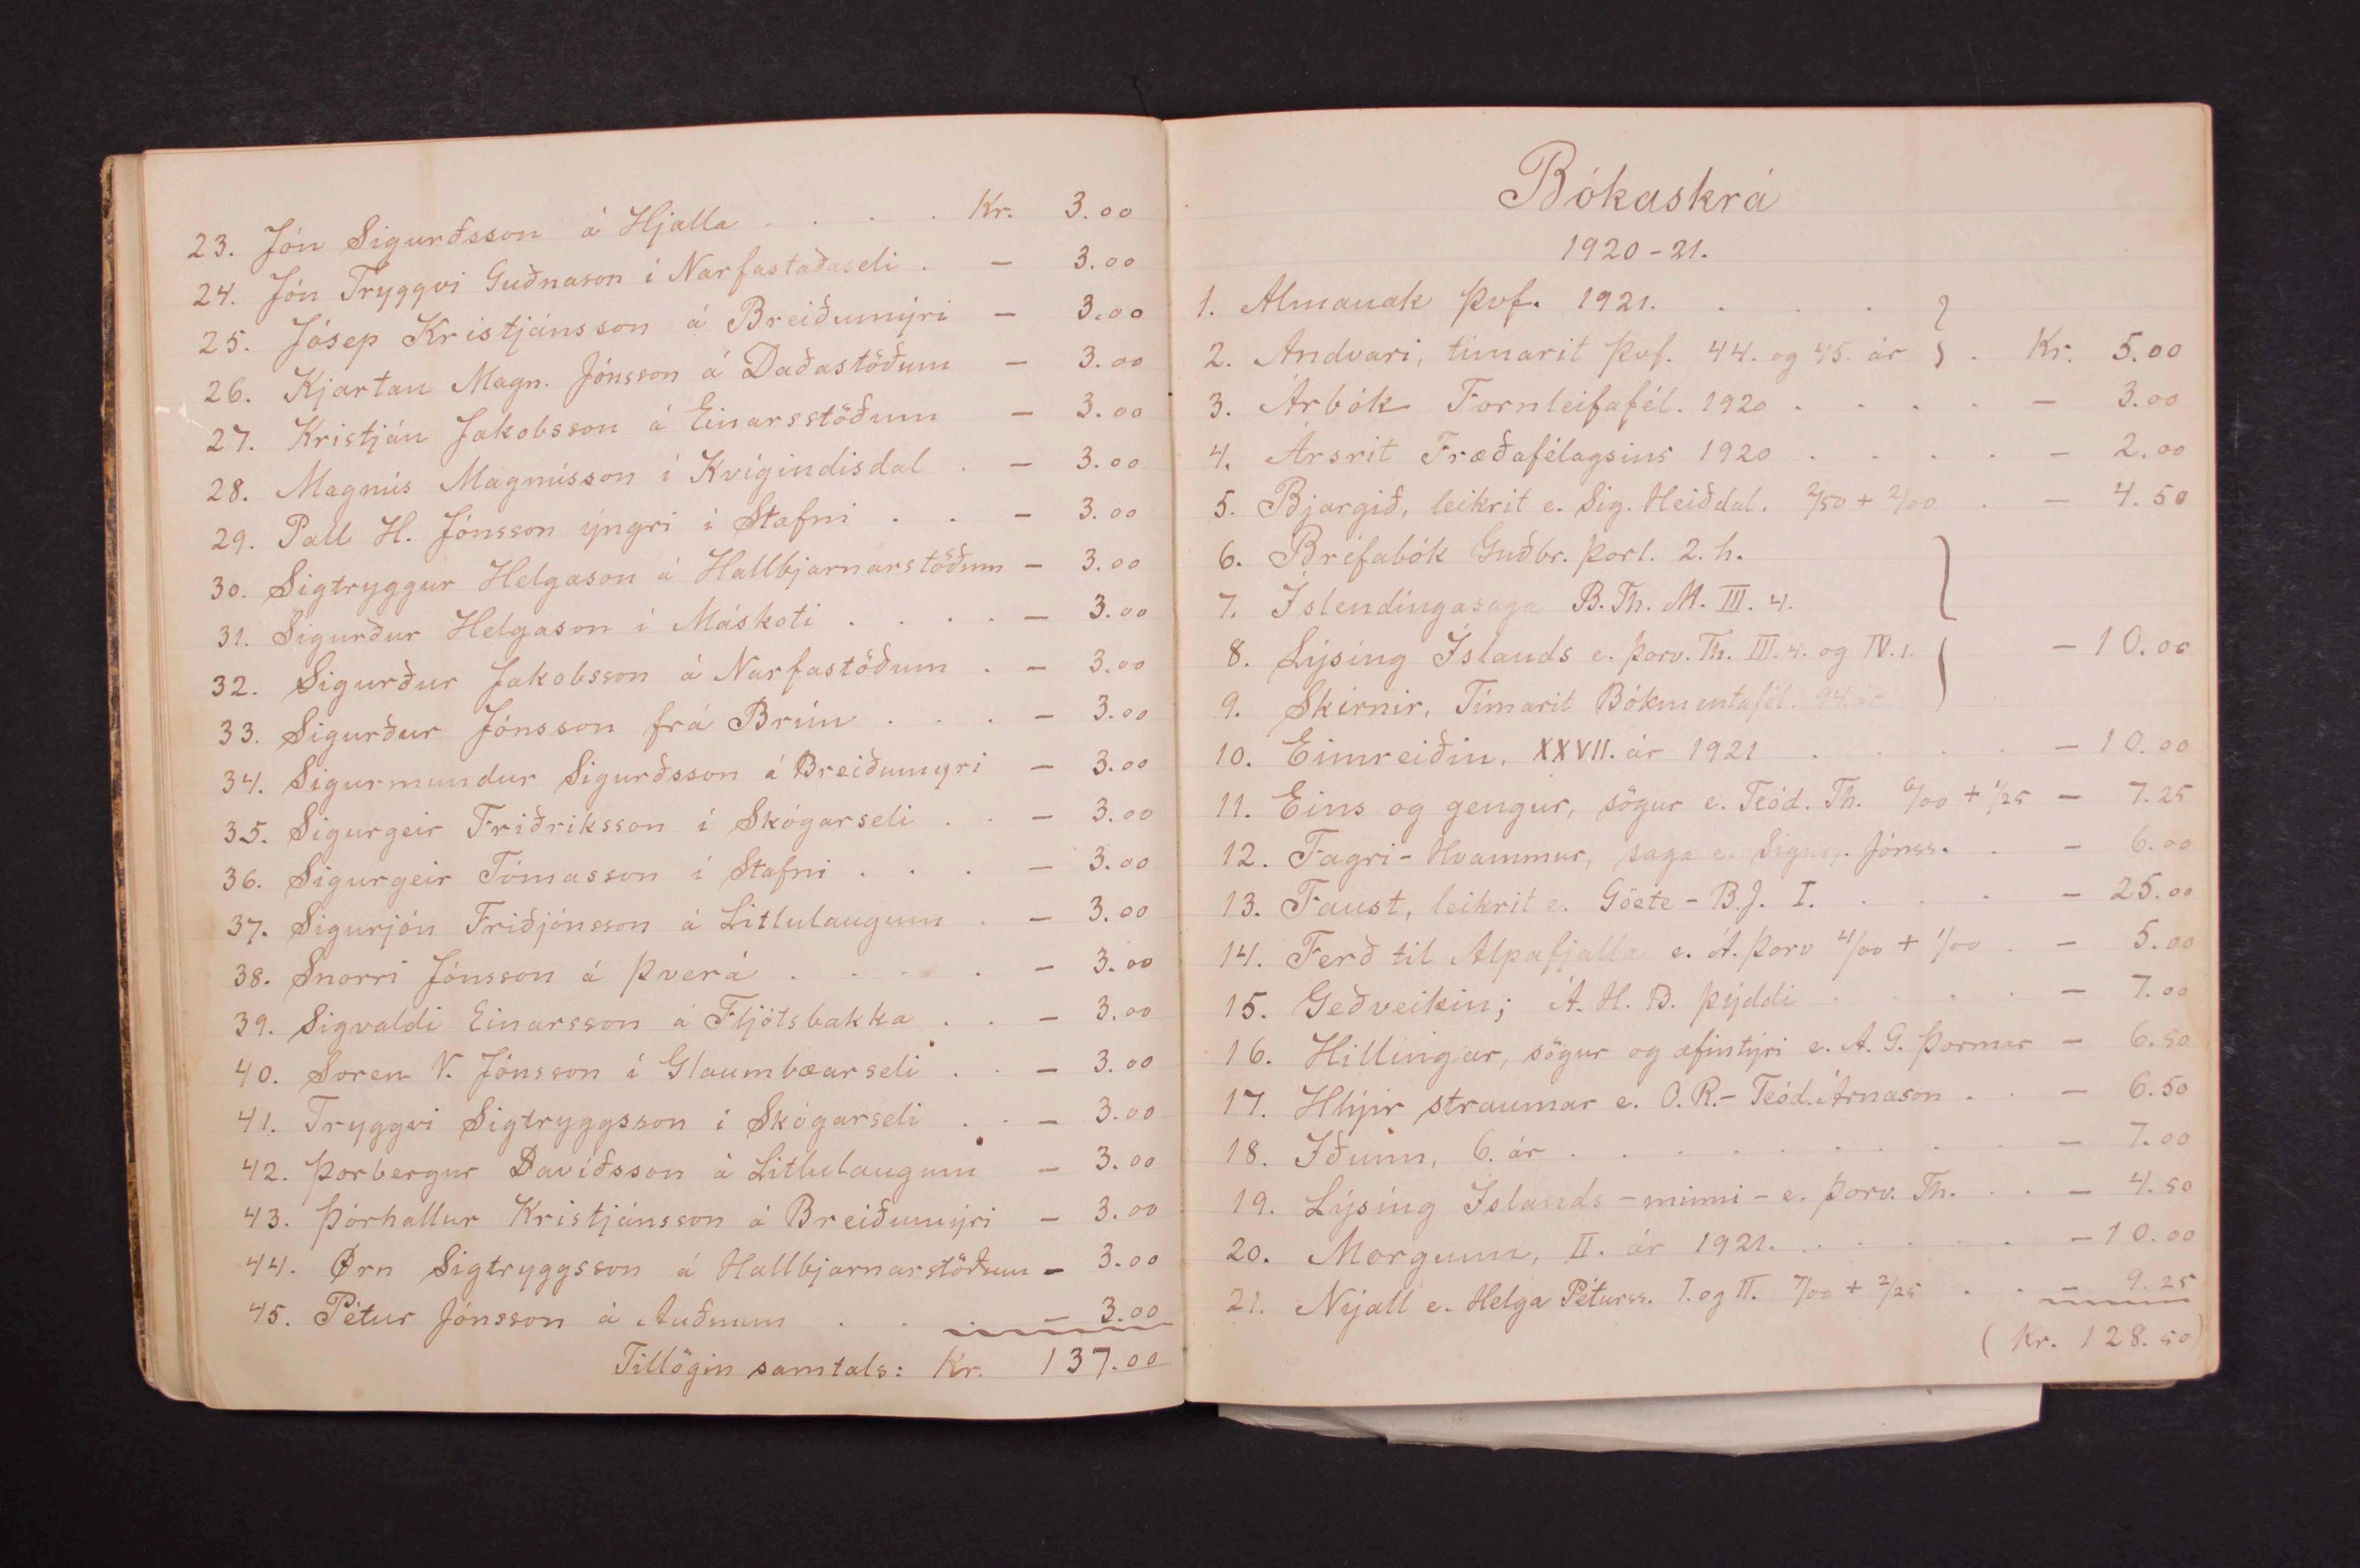 23. Jón Sigurðsson á Hjalla . . . . Kr. 3.00
24. Jón Tryggvi Guðnason í Narfastaðaseli . — 3.00
25. Jósep Kristjánsson á Breiðumýri — 3.00
26. Kjartan Magn. Jónsson á Daðastöðum — 3.00
27. Kristján Jakobsson á Einarsstöðum — 3.00
28. Magnús Magnússon í Kvígindisdal . — 3.00
29. Páll H. Jónsson ýngri í Stafni . . — 3.00
30. Sigtryggur Helgason á Hallbjarnarstöðum — 3.00
31. Sigurður Helgason í Máskoti . . . . — 3.00
32. Sigurður Jakobsson á Narfastöðum . — 3.00
33. Sigurður Jónsson frá Brún . . . — 3.00
34. Sigurmundur Sigurðsson á Breiðumýri — 3.00
35. Sigurgeir Friðriksson í Skógarseli . . — 3.00
36. Sigurgeir Tómasson í Stafni . . . — 3.00
37. Sigurjón Friðjónsson á Litlulaugum . — 3.00
38. Snorri Jónsson á Þverá . . . . — 3.00
39. Sigvaldi Einarsson á Fljótsbakka . . — 3.00
40. Soren V. Jónsson í Glaumbæarseli . . — 3.00
41. Tryggvi Sigtryggsson í Skógarseli . . — 3.00
42. Þorbergur Davíðsson á Litlulaugum — 3.00
43. Þórhallur Kristjánsson á Breiðumýri — 3.00
44. Örn Sigtryggsson á Hallbjarnarstöðum — 3.00
45. Pétur Jónsson á Auðnum . . . — 3.00
Tillögin samtals: Kr. 137.00
Bókaskrá
1920-21.
1. Almanak Þvf. 1921. . . .
2. Andvari, tímarit Þvf. 44. og 45. ár } . Kr. 5.00
3. Árbók Fornleifafél. 1920 . . . . — 3.00
4. Ársrit Fræðafélagsins 1920 . . . . — 2.00
5. Bjargið, leikrit e. Sig. Heiðdal. 2/50 + 2/00 . — 4.50
6. Bréfabók Guðbr. Þorl. 2. h.
7. Íslendíngasaga B. Th. M. III. 4.
8. Lýsíng Íslands e. Þorv. Th. III. 4. og IV. 1. } — 10.00
9. Skírnir, Tímarit Bókmentafél. 94. ár
10. Eimreiðin, XXVII. ár 1921 . . . . — 10.00
11. Eins og gengur, sögur e. Teód. Th. 6/00 + 1/25 — 7.25
12. Fagri-Hvammur, saga e. Jónss. . — 6.00
13. Faust, leikrit e. Göete - B.J. I. . . . — 25.00
14. Ferð til Alpafjalla e. Á. Þorv 4/00 + 1/00 . — 5.00
15. Geðveikin; Á. H. B. þýddi . . . . — 7.00
16. Hillíngar, sögur og æfintýri e. A. G. Þormar — 6.50
17. Hlýir straumar e. O. R. - Teód. Árnason . . — 6.50
18. Iðunn, 6. ár . . . . . . . . — 7.00
19. Lýsíng Íslands - minni - e. Þorv. Th. . . — 4.50
20. Morgunn, II. ár 1921. . . . . . — 10.00
21. Nýall e. Helga Péturss. I. og II. 7/00 + 2/25 . . — 9.25
(Kr. 128.50)